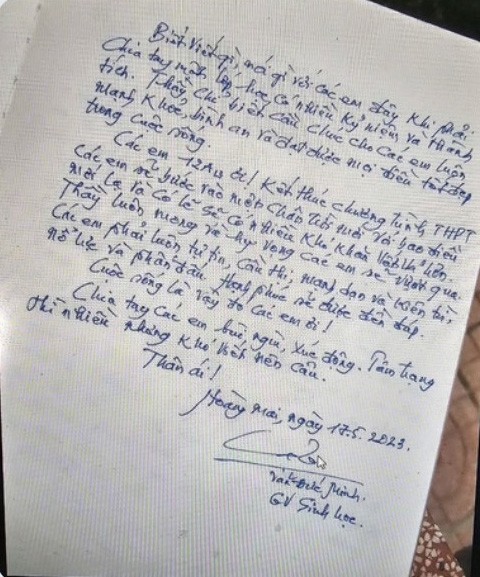 Biết viết gì, nói gì với các em đây khi phải
Chia tay một lớp học có nhiều kỷ niệm và thành
tích. Thầy chỉ biết cầu chúc cho các em luôn
mạnh khoẻ, bình an và đạt được mọi điều tốt đẹp
trong cuộc sống.
Các em 12A ơi! Kết thúc chương trình THPT
các em sẽ bước vào một chân trời mới với bao điều
mới lạ và có lẽ sẽ có nhiều khó khăn vất vả hơn.
Thầy luôn mong và hy vọng các em sẽ vượt qua.
Các em phải luôn tự tin, cần thì mạnh dạn và kiên trì,
nỗ lực và phấn đấu hạnh phúc sẽ được đền đáp.
Cuộc sống là vậy đó các em ơi!
Chia tay các em bùi ngùi, xúc động. Tâm trạng
thì nhiều nhưng khó viết nên câu.
Thân ái!
Hoàng Mai, ngày 17.5.2023.
Đức Minh.
GV Sinh học.